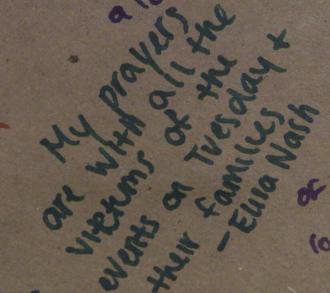 My prayers
are with all the
victums of the
events on Tuesday +
their families
- Ellia Nash
of